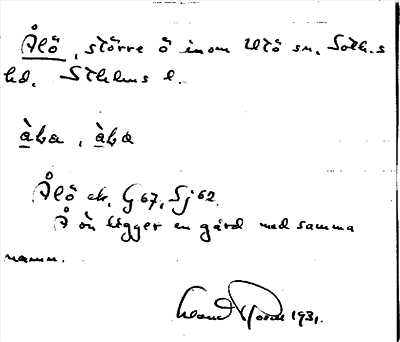 Ålö, större ö inom Utö sn. Soth.s
hd. Sthlms l.
àba, àba
Ålö ek. G 67, Sj 62.
Å ön ligger en gård med samma
namn.
1931.